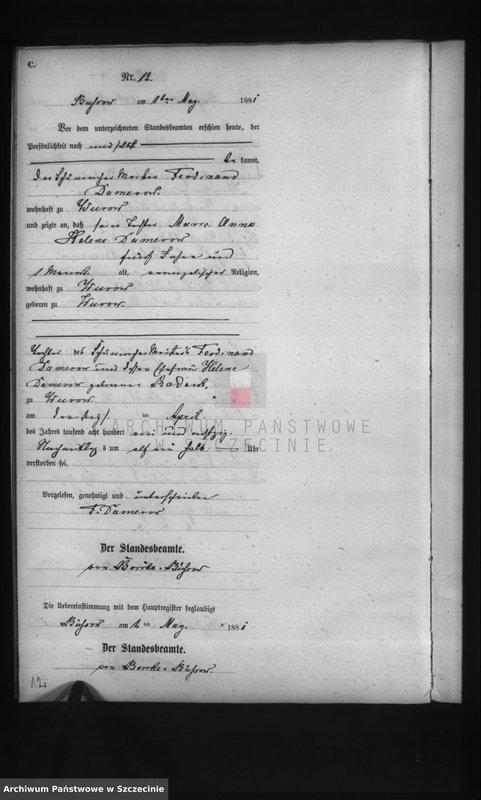 C.
Nr. 12.
am 1ten May. 1881
Vor dem unterzeichneten Standesbeamten erschien heute, der
Persönlichkeit nach
be kannt,
der Schumacher Meister Ferdinand
Damerow.
wohnhaft zu Wurow
und zeigte an, daß seine Tochter Marie Anna
Helene Damerow
fünf Jahre und
1 Monat alt, evangelischer Religion,
wohnhaft zu Wurow
geboren zu Wurow.
Tochter des Schumacher Meisters Ferdinand
Damerow und dessen Ehefrau Helene
Damerow geborenen
zu Wurow.
am im April
des Jahres tausend acht hundert ein und achtzig
Nachmittags um elf ein halb Uhr
verstorben sei.
Vorgelesen, genehmigt und unterschrieben
F. Damerow
Der Standesbeamte.
von Borcke
Die Uebereinstimmung mit dem Hauptregister beglaubigt
am 1. ten May. 1881
Der Standesbeamte.
von Borcke
12
ARCHIWUM PAŃSTWOWE
W SZCZECINIE
Archiwum Państwowe w Szczecinie